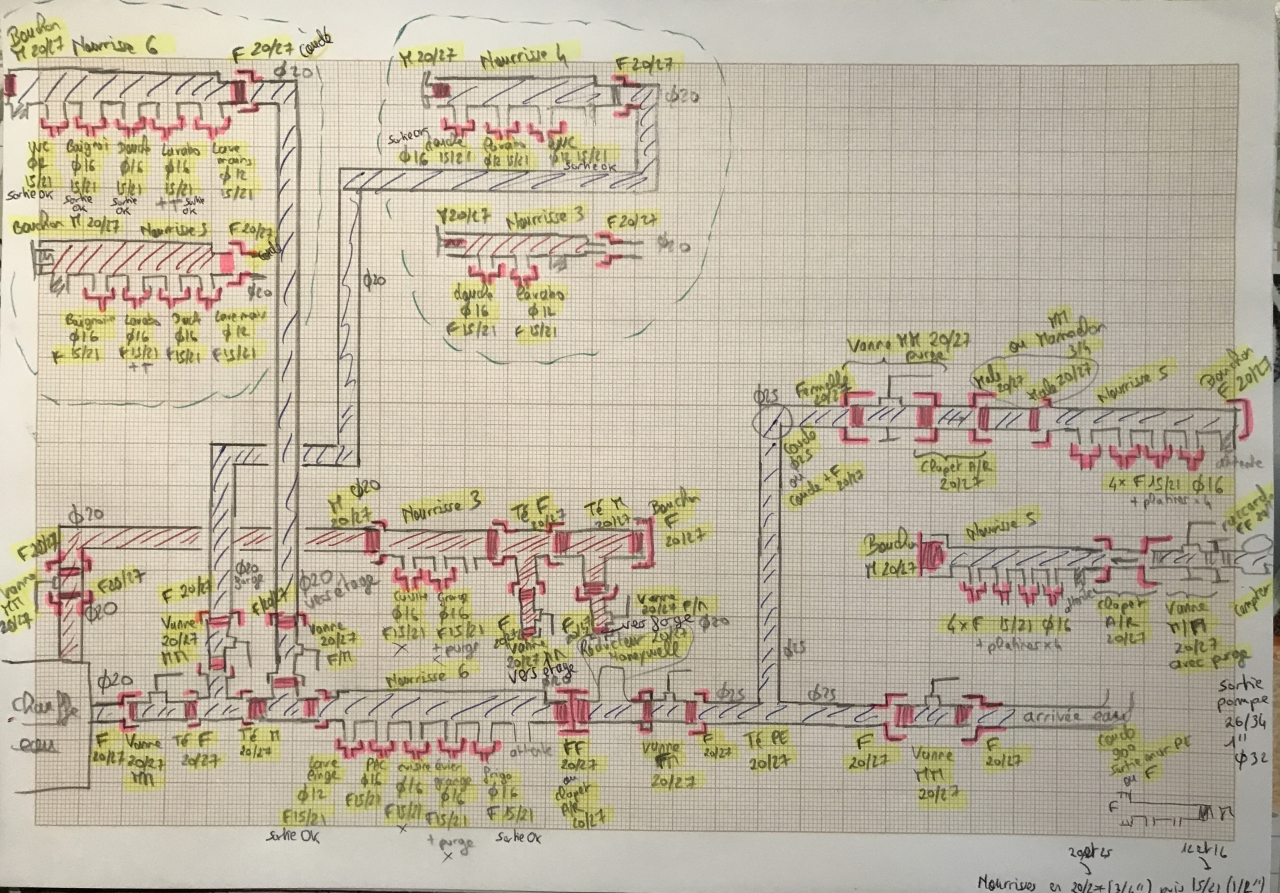 Bouchon
M 20/27
Nourrisse 6
F 20/27 coudé
Φ20
WC
Φ12
15/21
sortie OK
Baignoi
Φ16
15/21
sortie
OK
Douche
Φ16
15/21
sortie
OK
Lavabo
Φ16
15/21
++
sortie
OK
Lave
mains
Φ12
15/21
Bouchon M 20/27
Nourrisse 5
F 20/27
Φ20
Baignoir
Φ16
F 15/21
Lavabo
Φ16
F 15/21
++
Douch
Φ16
F 15/21
Lave main
Φ12
F 15/21
M 20/27
Nourrisse 4
F 20/27
Φ20
sortie OK
douche
Φ16 15/21
Lavabo
Φ12 15/21
WC
Φ12 15/21
sortie OK
M 20/27
Nourrisse 3
F 20/27
Φ20
douche
Φ16
F 15/21
lavabo
Φ12
F 15/21
Φ20
Vanne MM 20/27
purge
MM
ou Mamadon
3/4
Φ25
Femelle
20/27
Male
20/27
Male 20/27
Nourrisse 5
Bouchon
F 20/27
coude
Φ25
ou
coude + F
20/27
Clapet A/R
20/27
4x F 15/21 Φ16
+ platines x4
attente
Bouchon
M 20/27
Nourrisse 5
raccord
FF
4x F 15/21 Φ16
+ platines x4
attente
Clapet
A/R
20/27
Vanne
M/M
20/27
avec purge
compteur
Φ20
F 20/27
Vanne
MM
20/27
F 20/27
Φ20
M
20/27
Φ20
Nourrisse 3
Té F
20/27
Té M
20/27
Bouchon
F
20/27
Cuisine
Φ16
F 15/21
x
Grange
Φ16
F 15/21
+ purge
x
Φ20
forge
F 20/27
Vanne
20/27
MM
Φ20
vers étage
F 20/27
Vanne
20/27
F/M
F
20/27
Vanne
20/27
vers étage
Φ20
Vanne
20/27 F/M
vers forge
Φ20
Réducteur 20/27
honeywell
Chauffe
eau
Φ20
F
20/27
Vanne
20/27
MM
Té F
20/27
Té M
20/27
Nourrisse 6
Lave
linge
Φ12
F 15/21
sortie OK
PAC
Φ16
F 15/21
cuisine
Φ16
F 15/21
x
évier
grange
Φ16
F 15/21
+ purge
x
frigo
Φ16
F 15/21
sortie OK
attente
FF
20/27
ou
clapet
A/R
20/27
Vanne
FM
20/27
Φ25
F
20/27
Té PE
20/27
Φ25
Φ25
F
20/27
Vanne
MM
20/27
F
20/27
arrivée eau
coude
90°
sortie mur PE
ou F
F
M
sortie
pompe
26/34
1"
Φ32
20 et 25
12 et 16
Nourrisses en 20/27 (3/4") puis 15/21 (1/2")